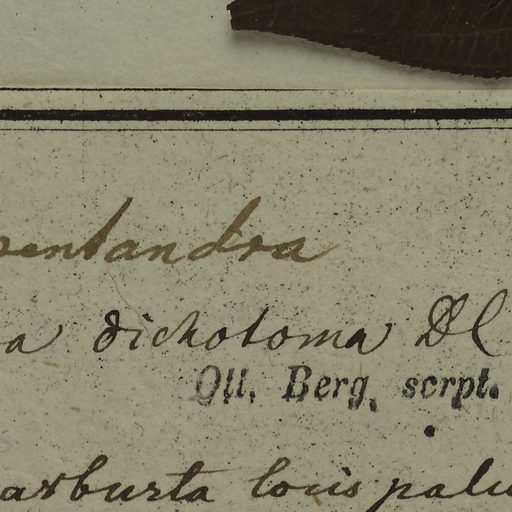 pentandra
a dichotoma Bl
Ott. Berg. scrpt.
arbusta locis palu